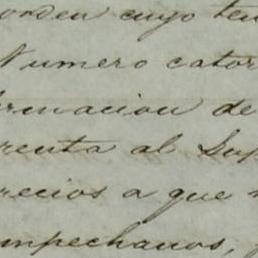 orden cuyo ten
Numero cator
rmacion de
renta al Sup
recios a que
mpechanos,